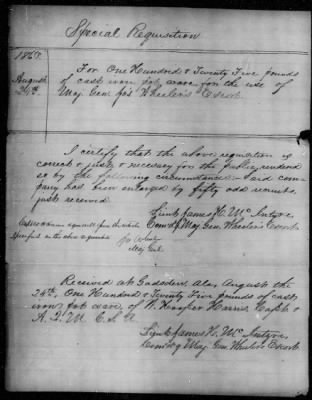 Special Requisition
1863
August
24th
For One Hundred & Twenty Five pounds
of cast iron pot ware for the use of
Maj Gen Jos Wheeler's Escort
I certify that the above requisition is
correct & just & necessary for the public, rendered
so by the following circumstances: said com-
pany has been enlarged by fifty odd recruits,
just received.
Lieut James H. McIntyre,
Comdg Maj Gen. Wheeler's Escort
specified in the above requisition
Jos Wheeler
Maj Genl
Received at Gadsden, Ala, August the
24th, One Hundred & Twenty Five pounds of cast
iron pot ware, of W. Hooper Harris, Capt &
A. Q. M. C. S. A
Lieut James H. McIntyre,
Comdg Maj Gen. Wheeler's Escort